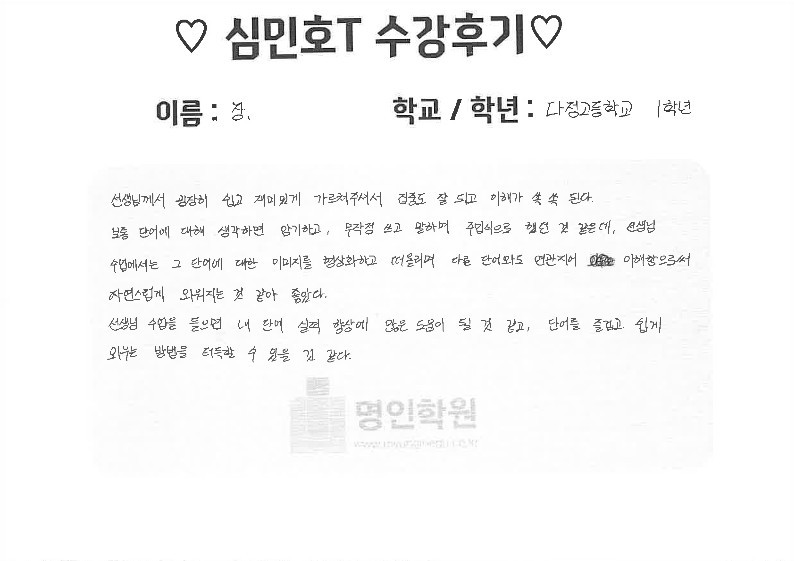 ♡ 심민호T 수강후기♡
이름 : 장.
학교 / 학년 : 다정고등학교 1학년
선생님께서 굉장히 쉽고 재미있게 가르쳐주셔서 집중도 잘 되고 이해가 쏙 쏙 된다.
보통 단어에 대해 생각하면 암기하고, 무작정 쓰고 말하며 주입식으로 했던 것 같은데, 선생님
수업에서는 그 단어에 대한 이미지를 형상화하고 떠올리며 다른 단어와도 연관지어 이해함으로써
자연스럽게 외워지는 것 같아 좋았다.
선생님 수업을 들으면 내 단어 실력 향상에 많은 도움이 될 것 같고, 단어를 즐겁고 쉽게
외우는 방법을 터득할 수 있을 것 같다.
명인학원